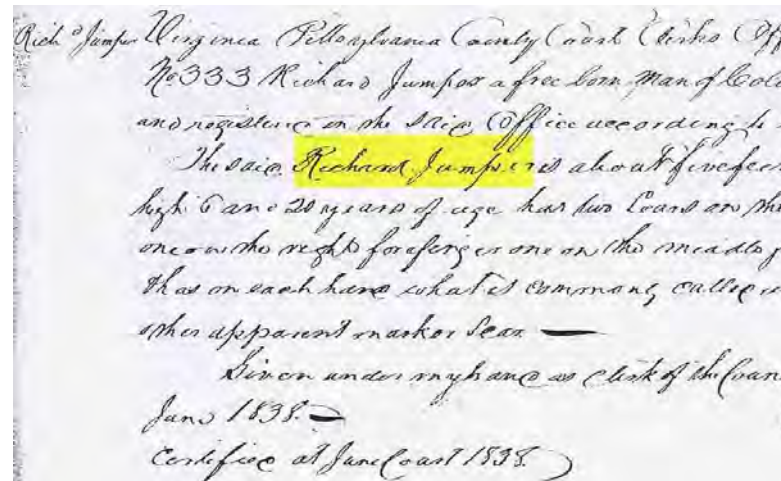 Rich'd Jumper Virginia Pittsylvania County Court Clerks Off
No 333 Richard Jumper a free born man of Colo
and registered in the said Office according to
The said Richard Jumper is about five feet
high 6 and 20 years of age has two Scars on the
one on the right forefinger one on the middle f
& has on each hand what is commonly called
other apparent mark or Scar —
Given under my hand as clerk of the Coun
June 1838 —
Certified at June Court 1838